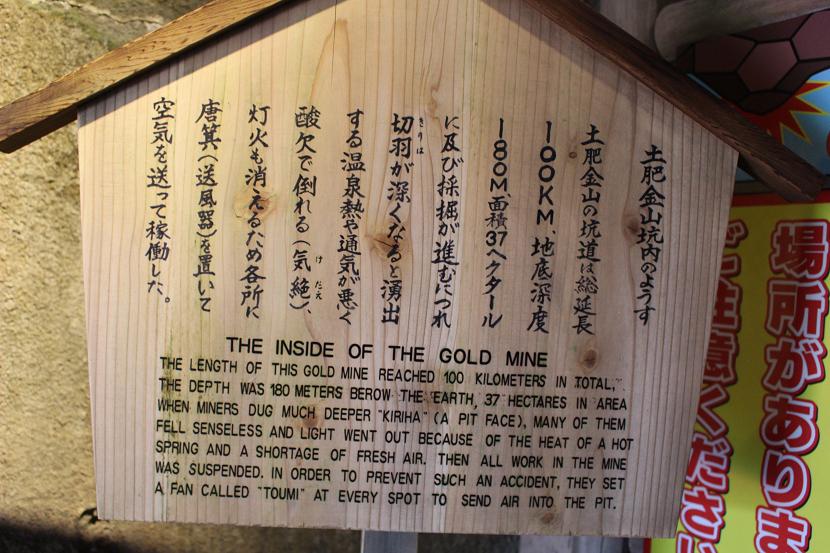 土肥金山坑内のようす
土肥金山の坑道は総延長
100KM、地底深度
180M面積37ヘクタール
に及び採掘が進むにつれ
切羽が深くなると湧出
きりは
する温泉熱や通気が悪く
酸欠で倒れる(気絶)、
けだえ
灯火も消えるため各所に
唐箕(送風器)を置いて
空気を送って稼働した。
THE INSIDE OF THE GOLD MINE
THE LENGTH OF THIS GOLD MINE REACHED 100 KILOMETERS IN TOTAL,
THE DEPTH WAS 180 METERS BEROW THE EARTH, 37 HECTARES IN AREA
WHEN MINERS DUG MUCH DEEPER "KIRIHA" (A PIT FACE), MANY OF THEM
FELL SENSELESS AND LIGHT WENT OUT BECAUSE OF THE HEAT OF A HOT
SPRING AND A SHORTAGE OF FRESH AIR. THEN ALL WORK IN THE MINE
WAS SUSPENDED. IN ORDER TO PREVENT SUCH AN ACCIDENT, THEY SET
A FAN CALLED "TOUMI" AT EVERY SPOT TO SEND AIR INTO THE PIT.
場所がありま
ご注意ください